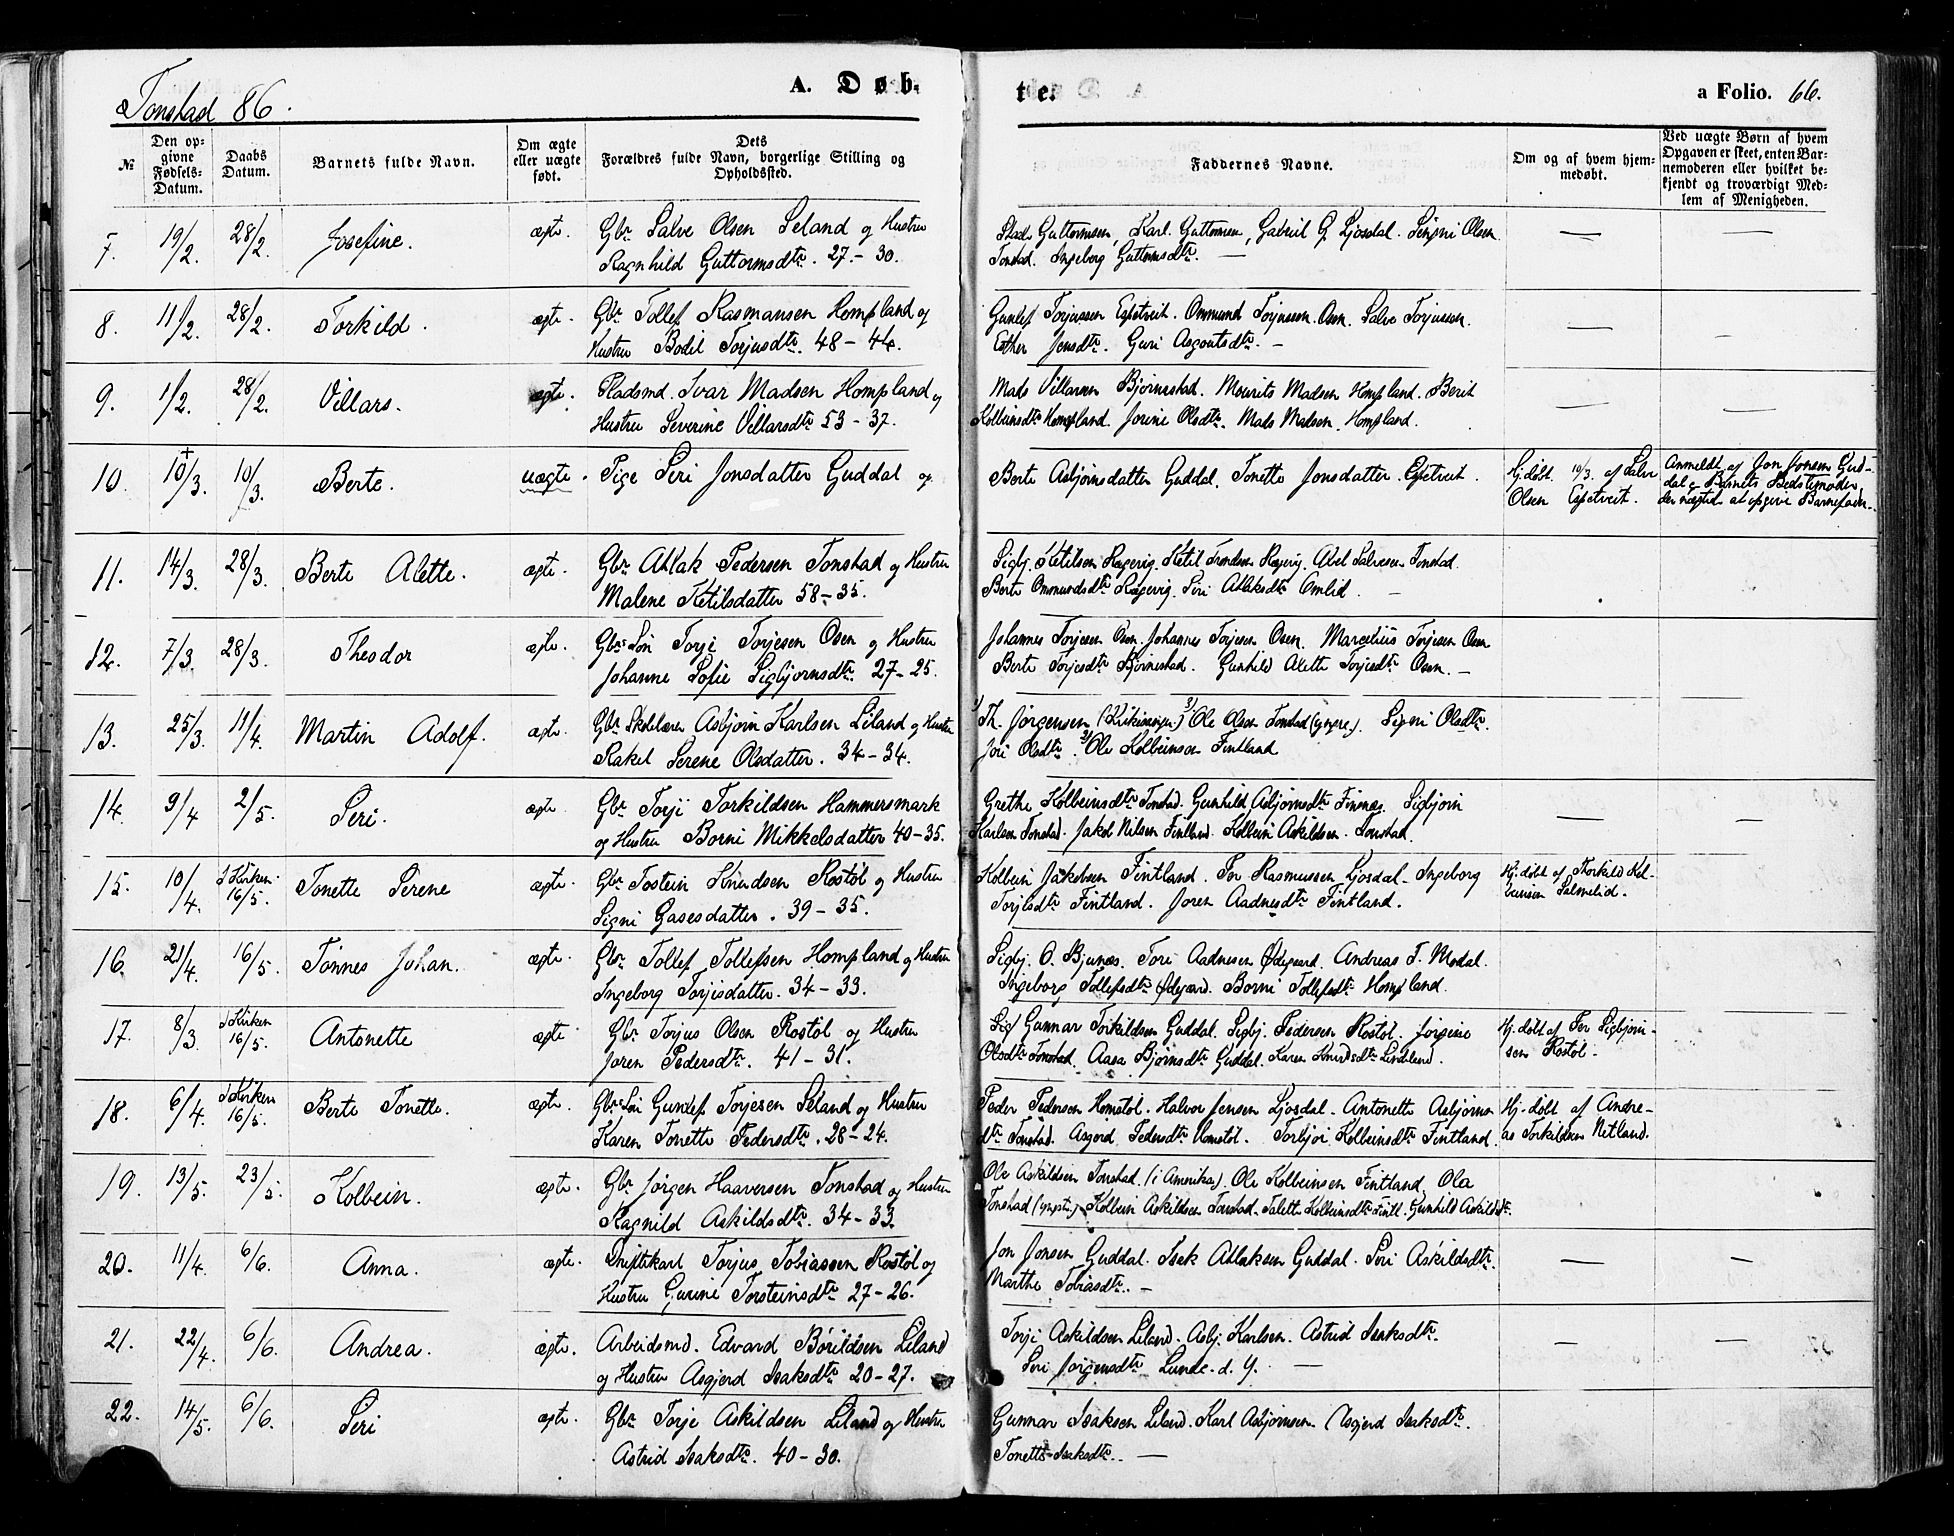 Tonstad 86.
A. Døb-
te.
a Folio. 66.
№
Den op-
givne
Fødsels-
Datum.
Daabs
Datum.
Barnets fulde Navn.
Om ægte
eller uægte
født.
Dets
Forældres fulde Navn, borgerlige Stilling og
Opholdssted.
Faddernes Navne.
Om og af hvem hjem-
medøbt.
Ved uægte Børn af hvem
Opgaven er skeet, enten Bar-
nemoderen eller hvilket be-
kjendt og troværdigt Med-
lem af Menigheden.
7. 19/2. 28/2. Josefine. ægte. Gbr Salve Olsen Seland og Hustru
Ragnhild Guttormsdtr. 27 - 30.
Guttormsen, Karl Guttormsen, Gabriel G. Ljosdal. Signi Olsen
Tonstad. Ingeborg Guttormsdtr. —
8. 11/2. 28/2. Torkild. ægte. Gbr Tollef Rasmussen Hompland og
Hustru Bodil Torjusdtr. 48 - 44.
Gunlef Torjussen Espetveit. Ommund Torjussen Osen. Salve Torjussen.
Esther Jensdtr. Guri Asgoutsdtr. —
9. 1/2. 28/2. Villars. ægte. Pladsmd. Ivar Madsen Hompland og
Hustru Severine Villarsdtr 53 - 37.
Mads Villarsen Bjørnestad. Mourits Madsen Hompland. Berit
Kolbeinsdtr Hompland. Jorine Olsdtr. Mads Madsen Hompland.
10. +10/3. 10/3. Berte. uægte. Pige Siri Jonsdatter Guddal og
Berte Asbjørnsdatter Guddal. Tonette Jonsdatter Espetveit.
Hj.døbt 10/3. af Salve
Olsen Espetveit.
Anmeldt af Jon Jonsen Gud-
dal og Barnets Bedstemoder,
der nægted at opgive Barnefader.
11. 14/3. 28/3. Berte Alette. ægte. Gbr Atlak Pedersen Tonstad og Hustru
Malene Ketilsdatter 58 - 35.
Sigbj. Ketilsen Røgevig. Ketil Røgevig. Abel Salvesen Tonstad.
Berte Ommundsdtr Røgevig. Siri Atlaksdtr Omlid. —
12. 7/3. 28/3. Theodor ægte. Gbr Søn Torje Torjesen Osen og Hustru
Johanne Sofie Sigbjørnsdtr. 27 - 25.
Johannes Torjesen Osen. Johannes Torjesen Osen. Marcelius Torjesen Osen
Berte Torjesdtr Bjørnestad. Gunhild Alette Torjesdtr Osen. —
13. 25/3. 11/4. Martin Adolf. ægte. Gbr Skolelærer Asbjørn Karlsen Liland og Hustru
Rakel Serene Olsdatter. 34 - 34.
1/ Th. Jørgensen 2/ Ole Olsen Tonstad (yngre). Signi Olsdtr.
Jori Olsdtr. 3/ Ole Kolbeinsen Fintland
14. 9/4 2/5. Seri. ægte Gbr Torji Torkildsen Hammersmark
og Hustru Borni Mikkelsdatter 40 - 35.
Grethe Kolbeinsdtr Tonstad. Gunhild Asbjørnsdtr Finnes. Sigbjørn
Karlsen Tonstad. Jakob Nilsen Fintland. Kolbein Askildsen Tonstad.
15. 10/4. I Kirken
16/5. Tonette Serene ægte. Gbr Tostein Knudsen Rostøl og Hustru
Signi Gasesdatter. 39 - 35.
Kolbein Jakobsen Fintland. Per Rasmussen Ljosdal - Ingeborg
Torjusdtr Fintland. Joren Aadnesdtr Fintland.
Hj. døbt af Thorkild Kol-
beinsen Salmelid.
16. 21/4. 16/5. Tønnes Johan. ægte. Gbr Tollef Tollefsen Hompland og Hustru
Ingeborg Torjisdatter. 34 - 33.
Sigbj. O. Bjunes. Tore Aadnesen Ødegaard. Andreas T. Modal.
Ingeborg Tollefsdtr Ødegaard. Borni Tollefsdtr Hompland.
17. 8/3. I Kirken
16/5. Antonette ægte Gbr Torjus Olsen Rostøl og Hustru
Joren Pedersdtr. 41 - 31.
Gunnar Torkildsen Guddal. Sigbj. Pedersen Rostøl. Jorgine
Olsdtr Tonstad. Aasa Bjørnsdtr Guddal. Karen Knudsdtr Lindeland.
Hj. døbt af Per Sigbjørn-
sen Rostøl.
18. 6/4. I Kirken
16/5. Berte Tonette. ægte. Gbr Søn Gunlef Torjesen Seland og Hustru
Karen Tonette Pedersdtr. 28 - 24.
Peder Pedersen Homstøl. Halvor Jensen Ljosdal - Antonette Asbjørns-
dtr Tonstad. Asgerd Pedersdtr Homstøl. Torbjør Kolbeinsdtr Fintland.
Hj. døbt af Andre-
as Torkildsen Netland.
19. 13/5. 23/5. Kolbein. ægte. Gbr Jørgen Haaversen Tonstad og Hustru
Ragnild Askildsdtr. 34 - 33.
Ole Askildsen Tonstad. (i Amerika). Ole Kolbeinsen Fintland. Ola
Tonstad (yngste). Kolbein Askildsen Tonstad. Salette Kolbeinsdtr Fintl. Gunhild Askildsdtr.
20. 11/4. 6/6. Anna. ægte. Driftekarl Torjus Tobiassen Rostøl og
Hustru Gurine Torsteinsdtr 27 - 26.
Jon Jonsen Guddal. Isak Atlaksen Guddal. Seri Askildsdtr.
Marthe Tobiasdtr. —
21. 22/4. 6/6. Andrea. ægte. Arbeidsmd. Edvard Børildsen Liland
og Hustru Asgjerd Isaksdtr 20 - 27.
Torje Askildsen Liland. Asbj. Karlsen. Astrid Isaksdtr.
Seri Jørgensdtr Lunde d. y. —
22. 14/5. 6/6. Seri ægte. Gbr Torje Askildsen Liland og Hustru
Astrid Isaksdtr. 40 - 30.
Gunnar Isaksen Liland. Karl Asbjørnsen. Asgjerd Isaksdtr.
Tonette Isaksdtr. —